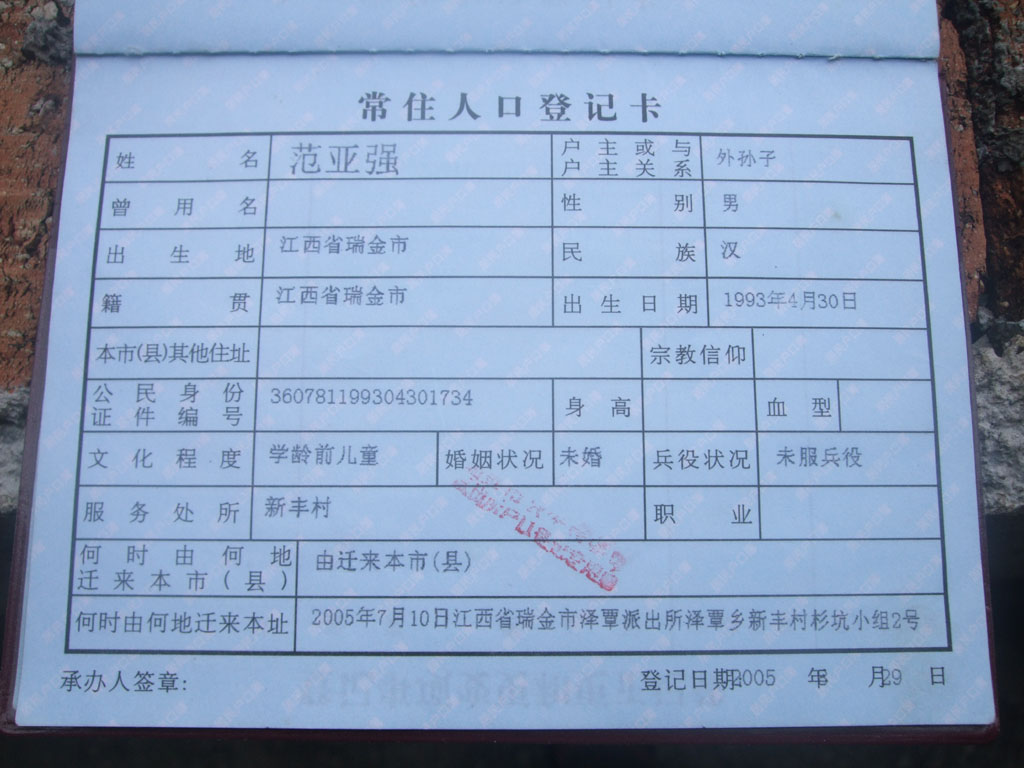 常住人口登记卡
姓名 范亚强 户主或与户主关系 外孙子
曾用名 性别 男
出生地 江西省瑞金市 民族 汉
籍贯 江西省瑞金市 出生日期 1993年4月30日
本市(县)其他住址 宗教信仰
公民身份证件编号 360781199304301734 身高 血型
文化程度 学龄前儿童 婚姻状况 未婚 兵役状况 未服兵役
服务处所 新丰村 职业
何时由何地迁来本市(县) 由迁来本市(县)
何时由何地迁来本址 2005年7月10日江西省瑞金市泽覃派出所泽覃乡新丰村杉坑小组2号
承办人签章: 登记日期 2005 年 月 29 日